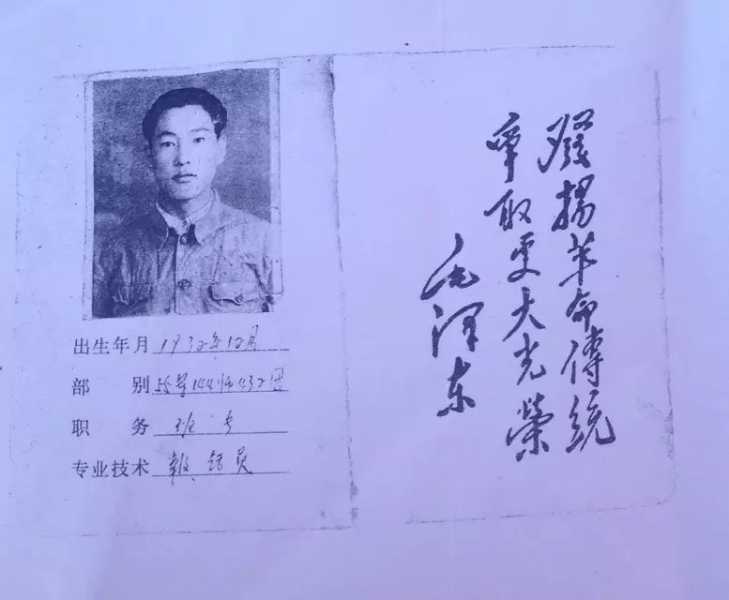 出生年月 1932年12月
部 别 144师432团
职 务 班长
专业技术 报话员
發揚革命傳統
爭取更大光榮
毛泽东